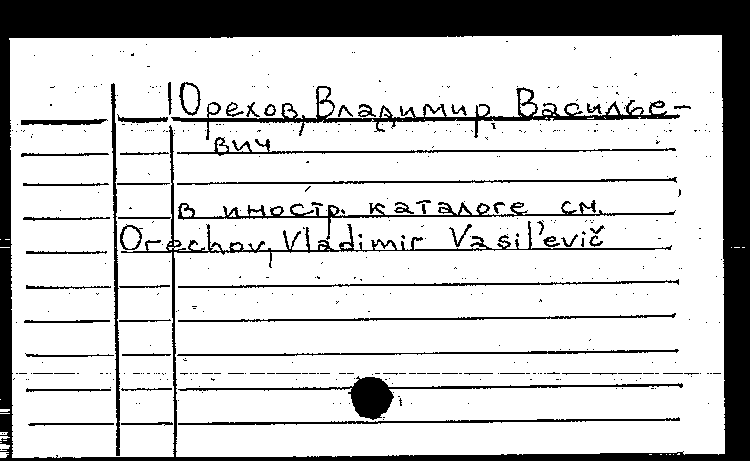 Орехов, Владимир Василье-
вич
в иностр. каталоге см.
Orechov, Vladimir Vasil'evič